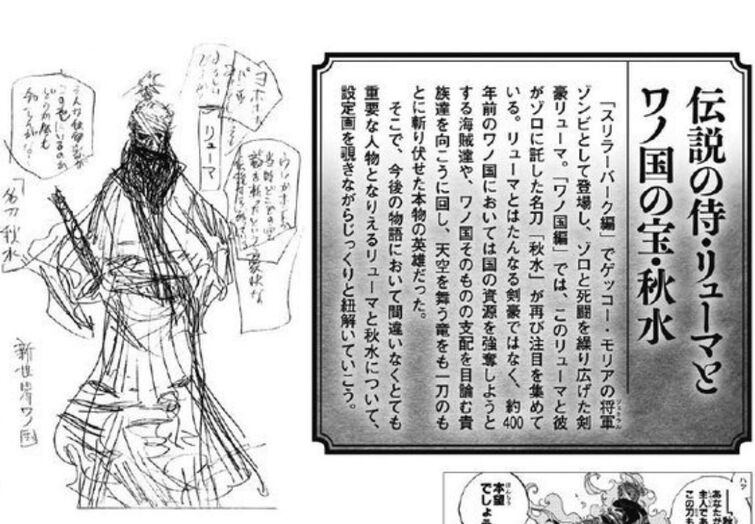 伝説の侍・リューマと
ワノ国の宝・秋水
「スリラーバーク編」でゲッコー・モリアの将軍
ジェネラル
ゾンビとして登場し、ゾロと死闘を繰り広げた剣
豪リューマ。「ワノ国編」では、このリューマと彼
がゾロに託した名刀「秋水」が再び注目を集めて
いる。リューマとはたんなる剣豪ではなく、約400
年前のワノ国においては国の資源を強奪しようと
する海賊達や、ワノ国そのものの支配を目論む貴
族達を向こうに回し、天空を舞う竜をも一刀のも
とに斬り伏せた本物の英雄だった。
そこで、今後の物語において間違いなくとても
重要な人物となりえるリューマと秋水について、
設定画を覗きながらじっくりと紐解いていこう。
ヨホホ
リューマ
「名刀 秋水」
新世界ワノ国
ハァ
あなたが
主人で
この刀も
ほんもう
本望
でしょう